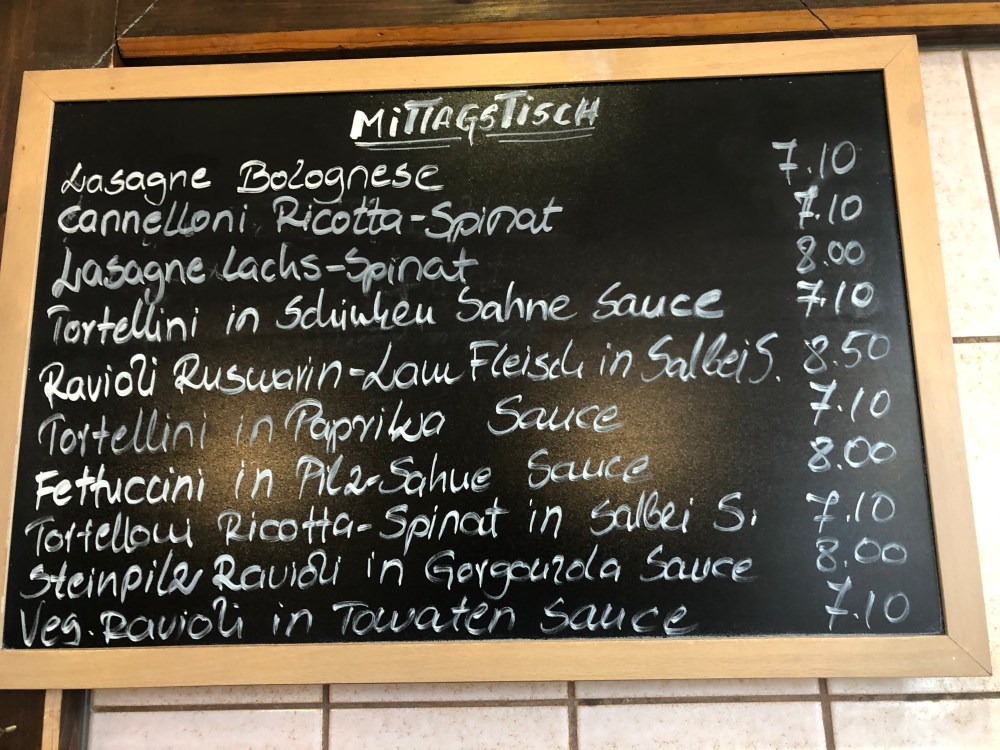 MITTAGSTISCH
Lasagne Bolognese 7.10
Cannelloni Ricotta-Spinat 7.10
Lasagne Lachs-Spinat 8.00
Tortellini in Schinken Sahne Sauce 7.10
Ravioli Rusmarin-Lam Fleisch in Salbei S. 8.50
Tortellini in Paprika Sauce 7.10
Fettuccini in Pilz-Sahne Sauce 8.00
Tortelloni Ricotta-Spinat in Salbei S. 7.10
Steinpilz Ravioli in Gorgonzola Sauce 8.00
Veg. Ravioli in Tomaten Sauce 7.10